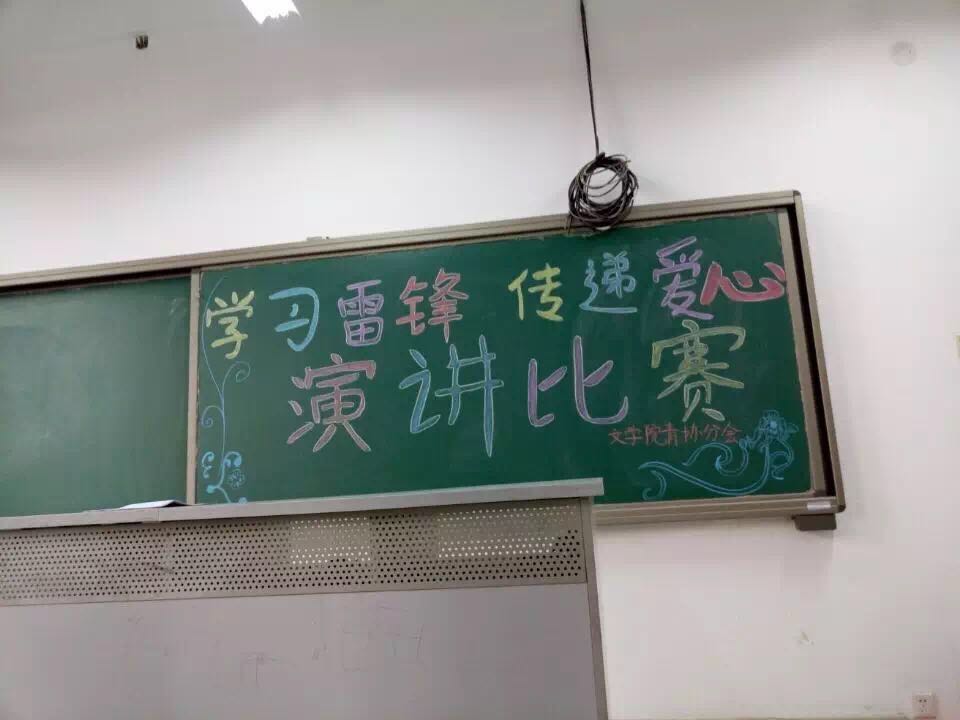 学习雷锋 传递爱心
演讲比赛
文学院青协分会